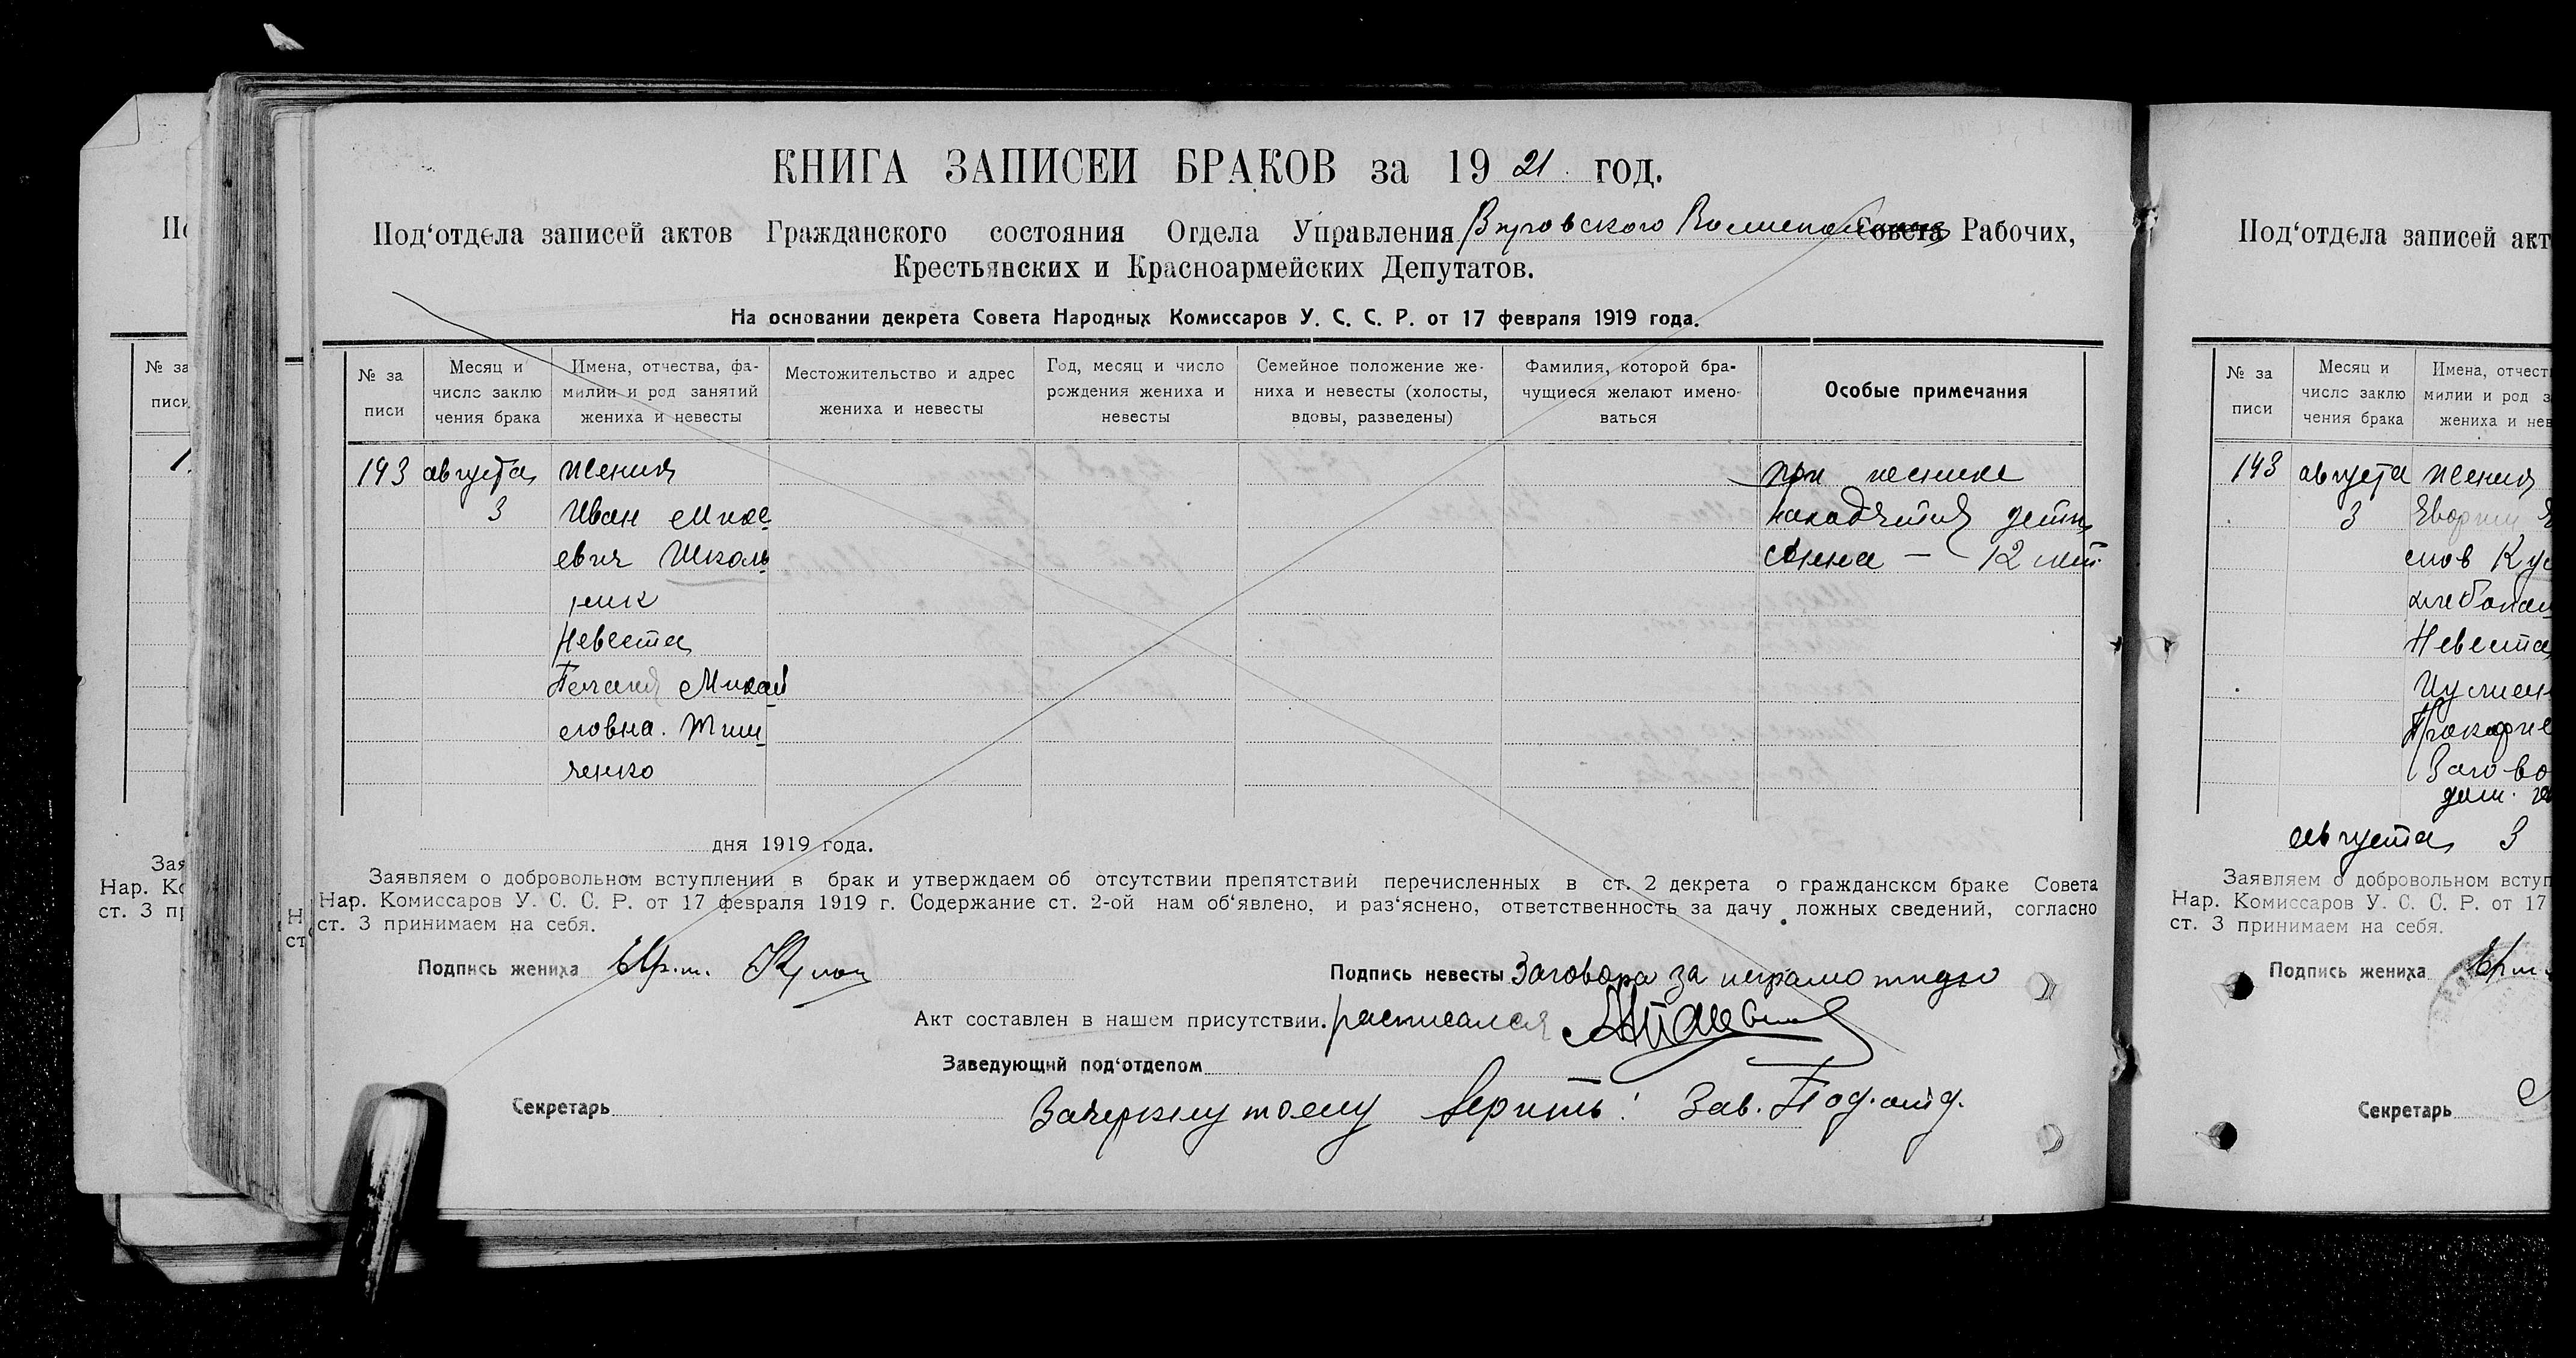 КНИГА ЗАПИСЕЙ БРАКОВ за 19 21 год.
Под‘отдела записей актов Гражданского состояния Отдела Управления Совета Рабочих,
Крестьянских и Красноармейских Депутатов.
На основании декрета Совета Народных Комиссаров У. С. С. Р. от 17 февраля 1919 года.
№ за
писи
Месяц и
число заклю
чения брака
Имена, отчества, фа-
милии и род занятий
жениха и невесты
Местожительство и адрес
жениха и невесты
Год, месяц и число
рождения жениха и
невесты
Семейное положение же-
ниха и невесты (холосты,
вдовы, разведены)
Фамилия, которой бра-
чущиеся желают имено-
ваться
Особые примечания
143 августа жених
3 Иван Михе
евич Школь
ник
Невеста
Михай
ловна. Тим
ченко
при женихе
находятся дети
Анна — 12 лет
дня 1919 года.
Заявляем о добровольном вступлении в брак и утверждаем об отсутствии препятствий перечисленных в ст. 2 декрета о гражданском браке Совета
Нар. Комиссаров У. С. С. Р. от 17 февраля 1919 г. Содержание ст. 2-ой нам об‘явлено, и раз‘яснено, ответственность за дачу ложных сведений, согласно
ст. 3 принимаем на себя.
Подпись жениха
Подпись невесты За неграмотную
Акт составлен в нашем присутствии. расписался
Заведующий под‘отделом
Секретарь
Зачеркнутому верить! Зав. Под.отд.
Под‘отдела записей акт
№ за
писи
Месяц и
число заклю
чения брака
Имена, отчест
милии и род з
жениха и нев
143 августа жених
3
Невеста
августа 3
Заявляем о добровольном вступ
Нар. Комиссаров У. С. С. Р. от 17
ст. 3 принимаем на себя.
Подпись жениха
Секретарь